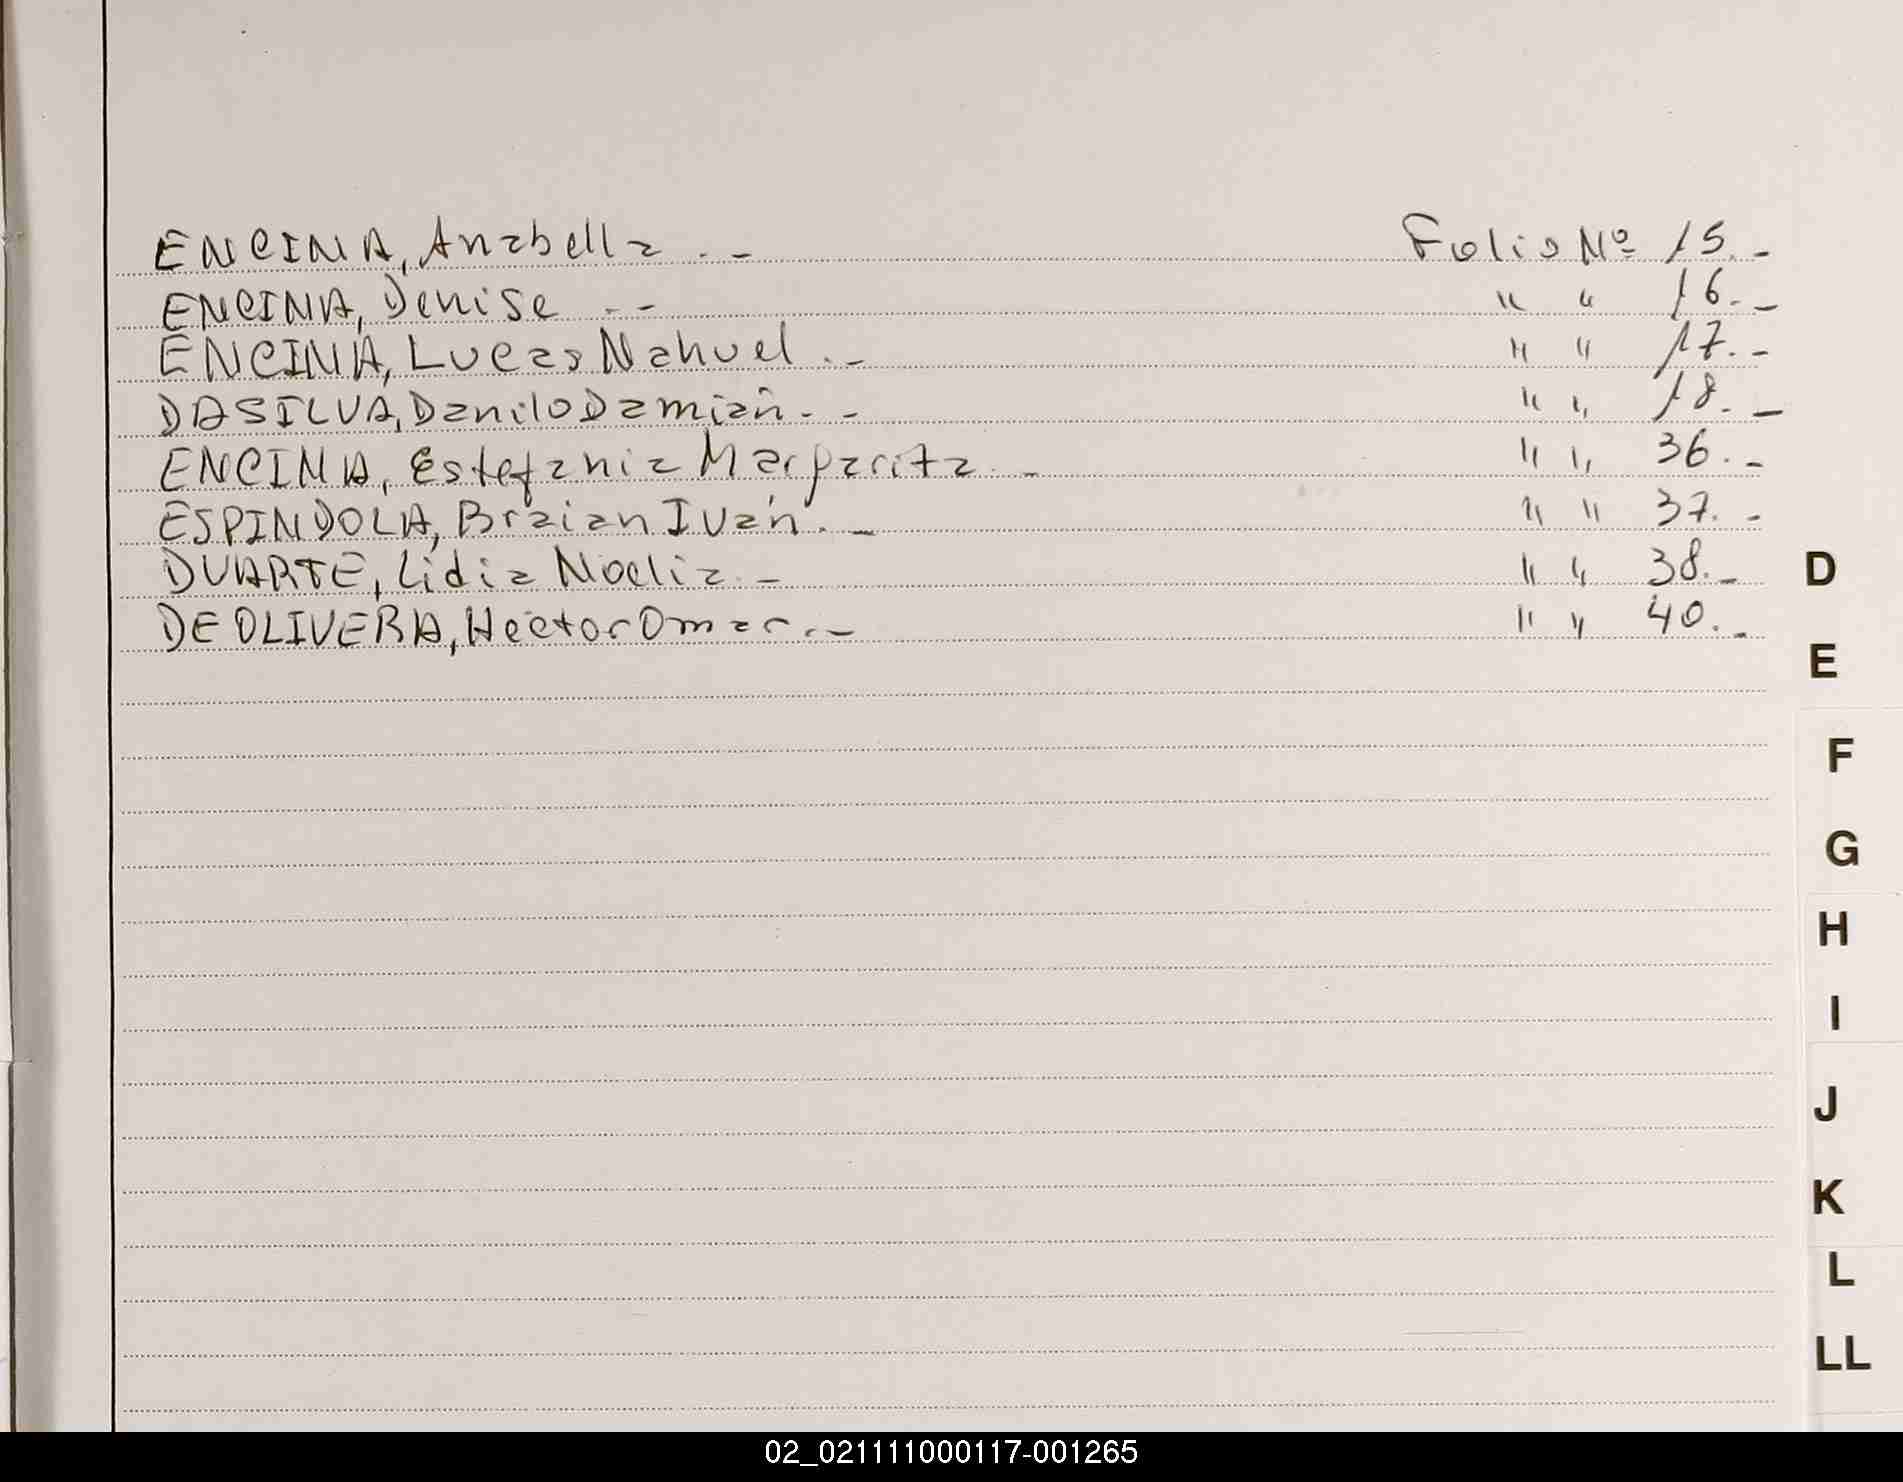 ENCINA, Anabella . - Folio Nº 15. -
ENCINA, Denise . - - " " 16. -
ENCINA, Lucas Nahuel . - " " 17. -
DASILVA, Danilo Damián . - " " 18. -
ENCINA, Estefania Margarita . - " " 36. -
ESPINDOLA, Braian Iván . - " " 37. -
DUARTE, Lidia Noelia . - " " 38. -
DE OLIVERA, Hector Omar . - " " 40. -
D
E
F
G
H
I
J
K
L
LL
02_021111000117-001265